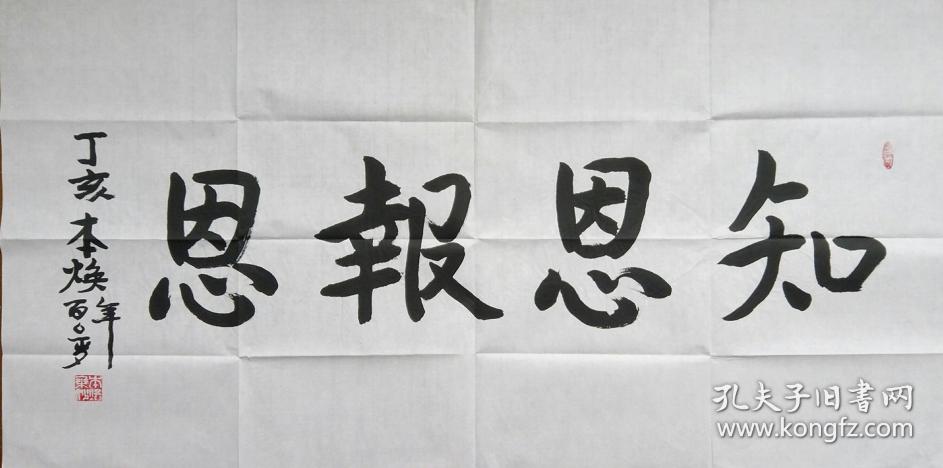 知恩報恩
丁亥本焕
百〇一年
孔夫子旧书网
www.kongfz.com